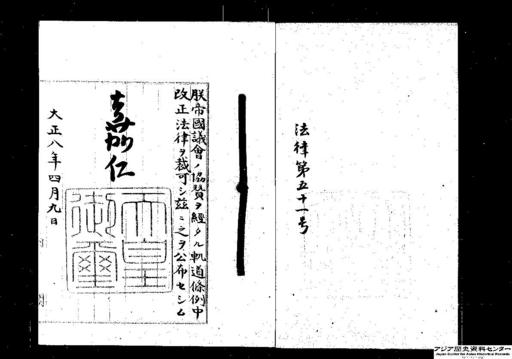 法律第五十一号
朕帝國議會ノ協賛ヲ經タル軌道條例中
改正法律ヲ裁可シ茲ニ之ヲ公布セシム
嘉仁
天皇
御璽
大正八年四月九日
アジア歴史資料センター
Japan Center for Asian Historical Records